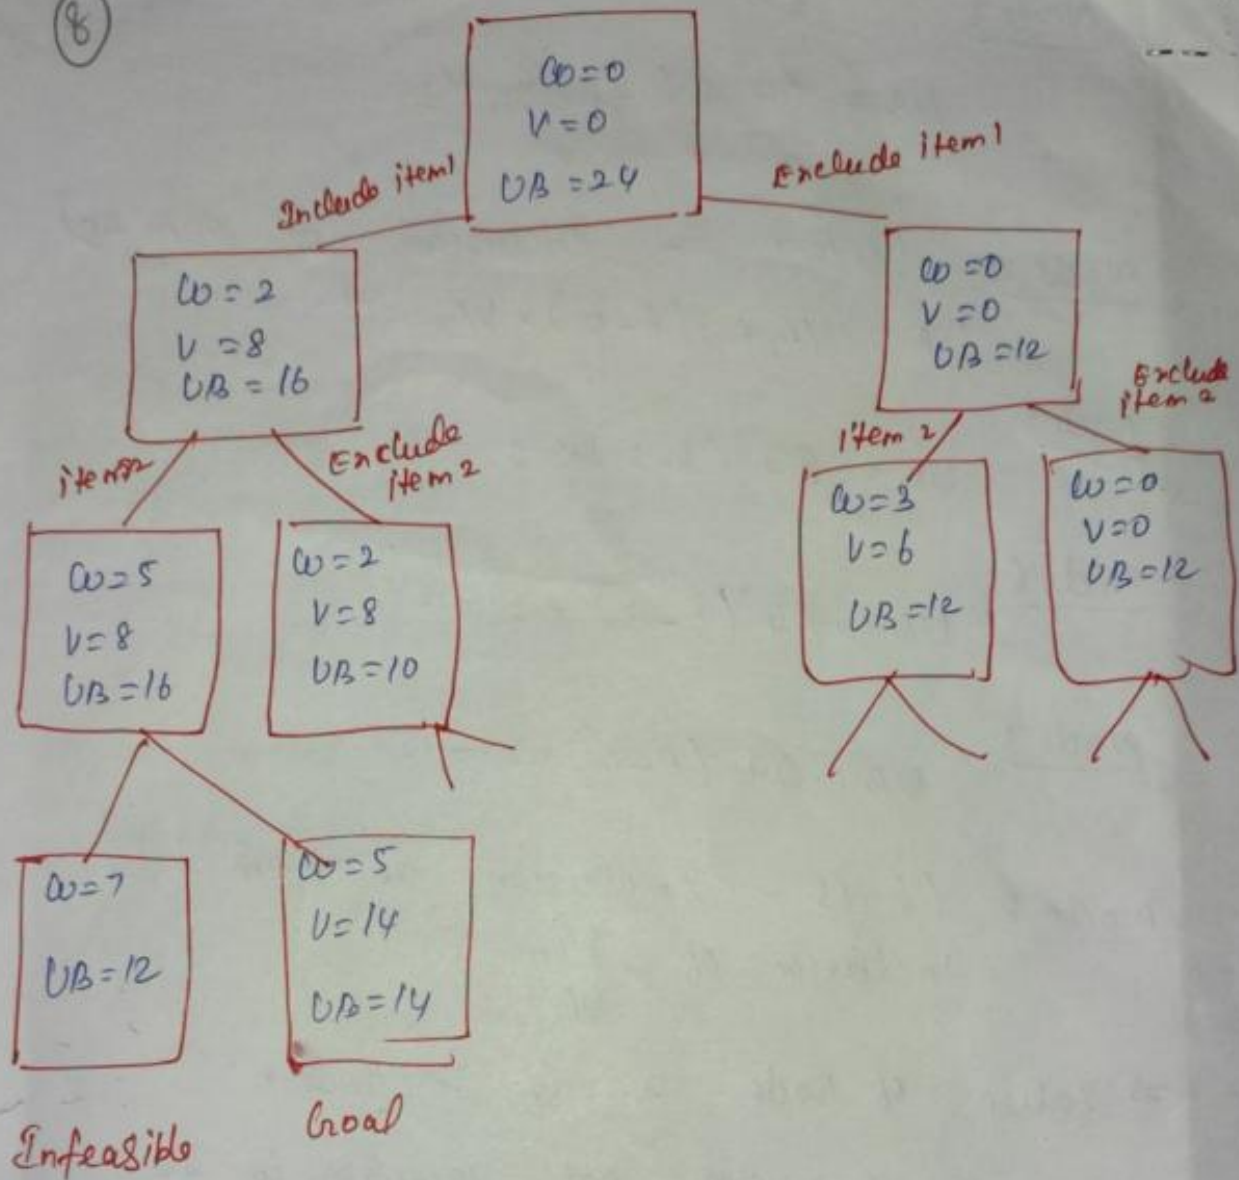 8
W=0
V=0
UB=24
Include item1
Exclude item1
W=2
V=8
UB=16
W=0
V=0
UB=12
item 2
Exclude
item 2
item 2
Exclude
item 2
W=5
V=8
UB=16
W=2
V=8
UB=10
W=3
V=6
UB=12
W=0
V=0
UB=12
W=7
UB=12
W=5
V=14
UB=14
Infeasible
Goal